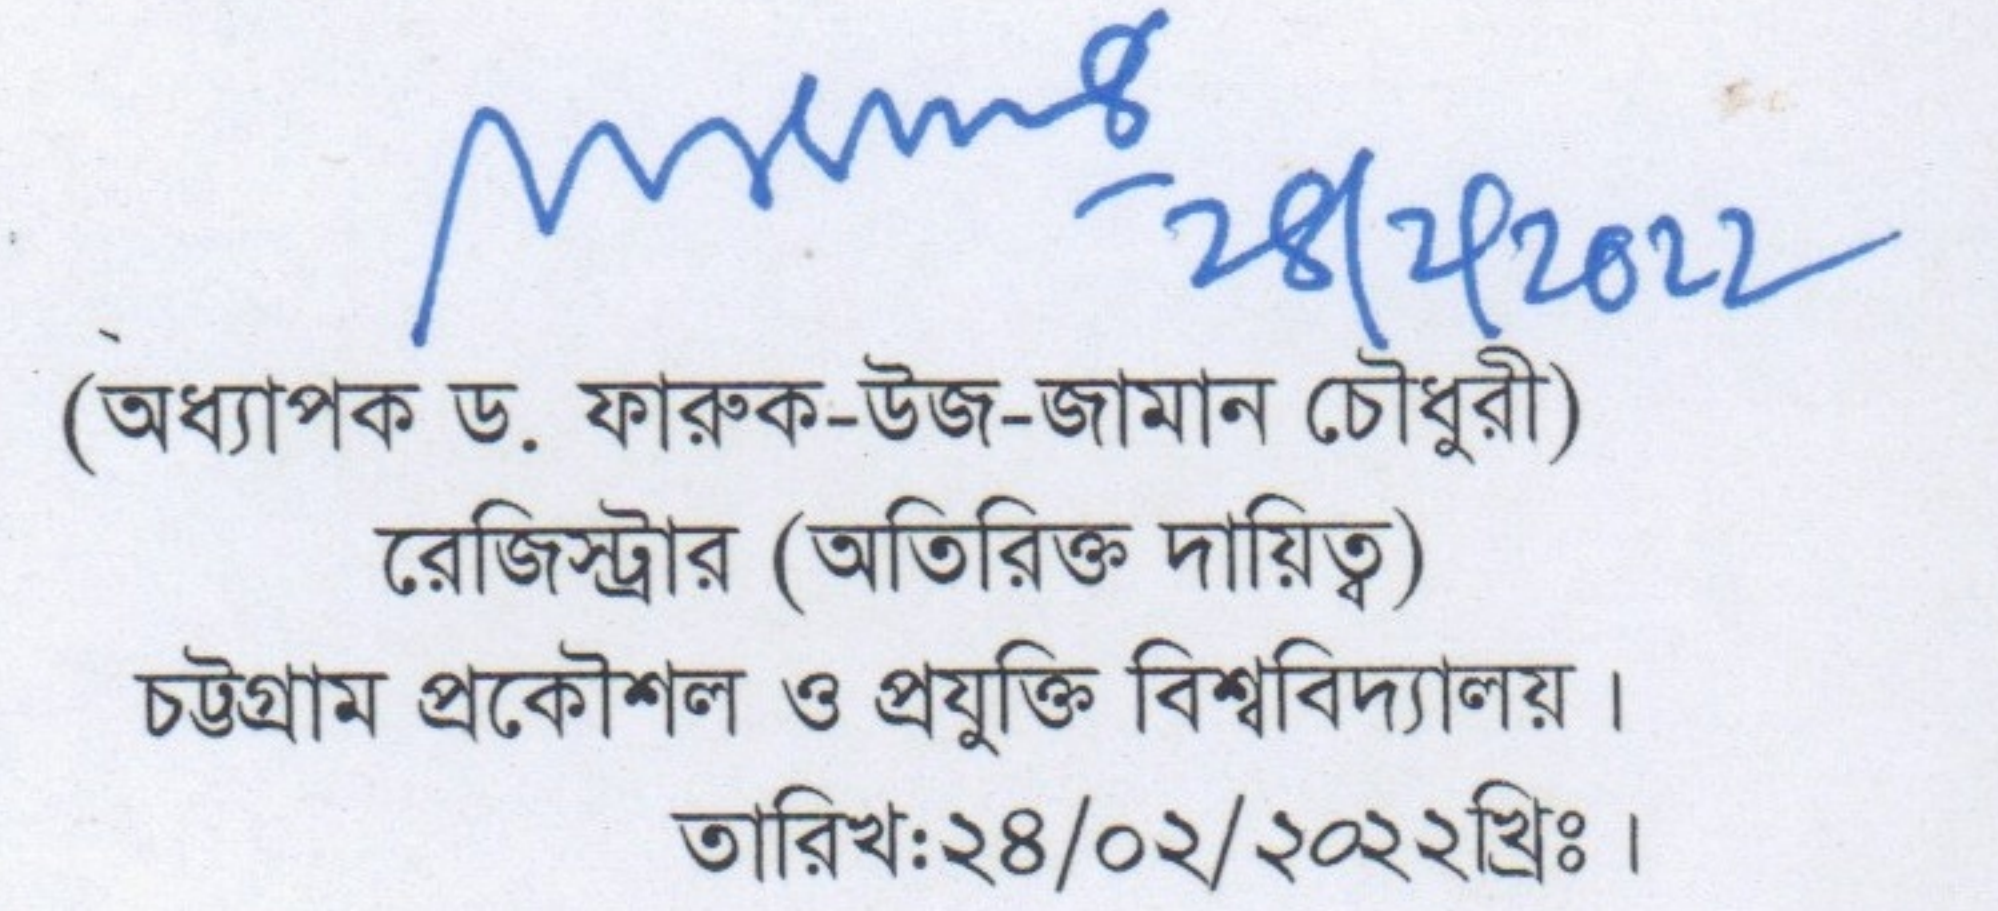 28/2/2022
(অধ্যাপক ড. ফারুক-উজ-জামান চৌধুরী)
রেজিস্ট্রার (অতিরিক্ত দায়িত্ব)
চট্টগ্রাম প্রকৌশল ও প্রযুক্তি বিশ্ববিদ্যালয়।
তারিখ:২৪/০২/২০২২খ্রিঃ।